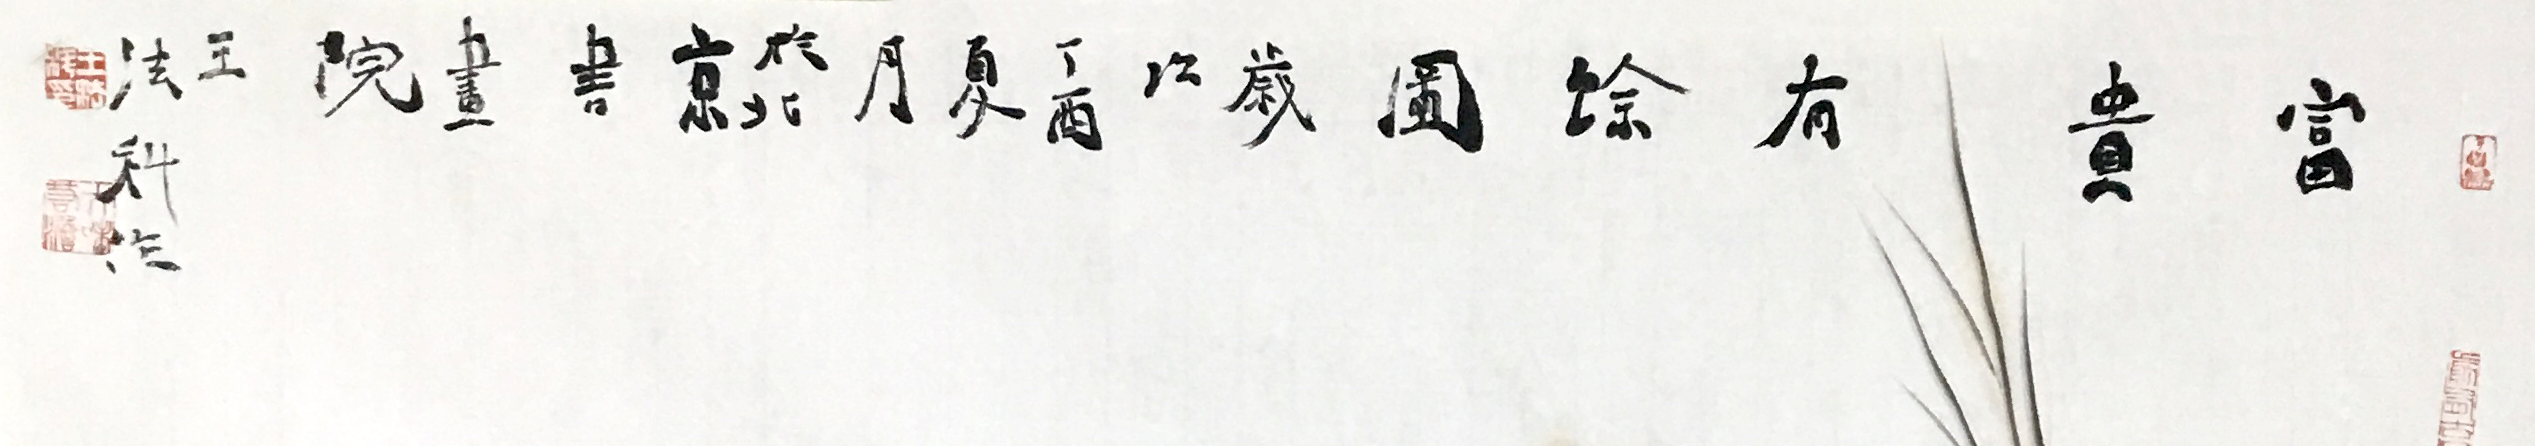 富貴有餘圖歲次丁酉夏月於北京書畫院王法科作